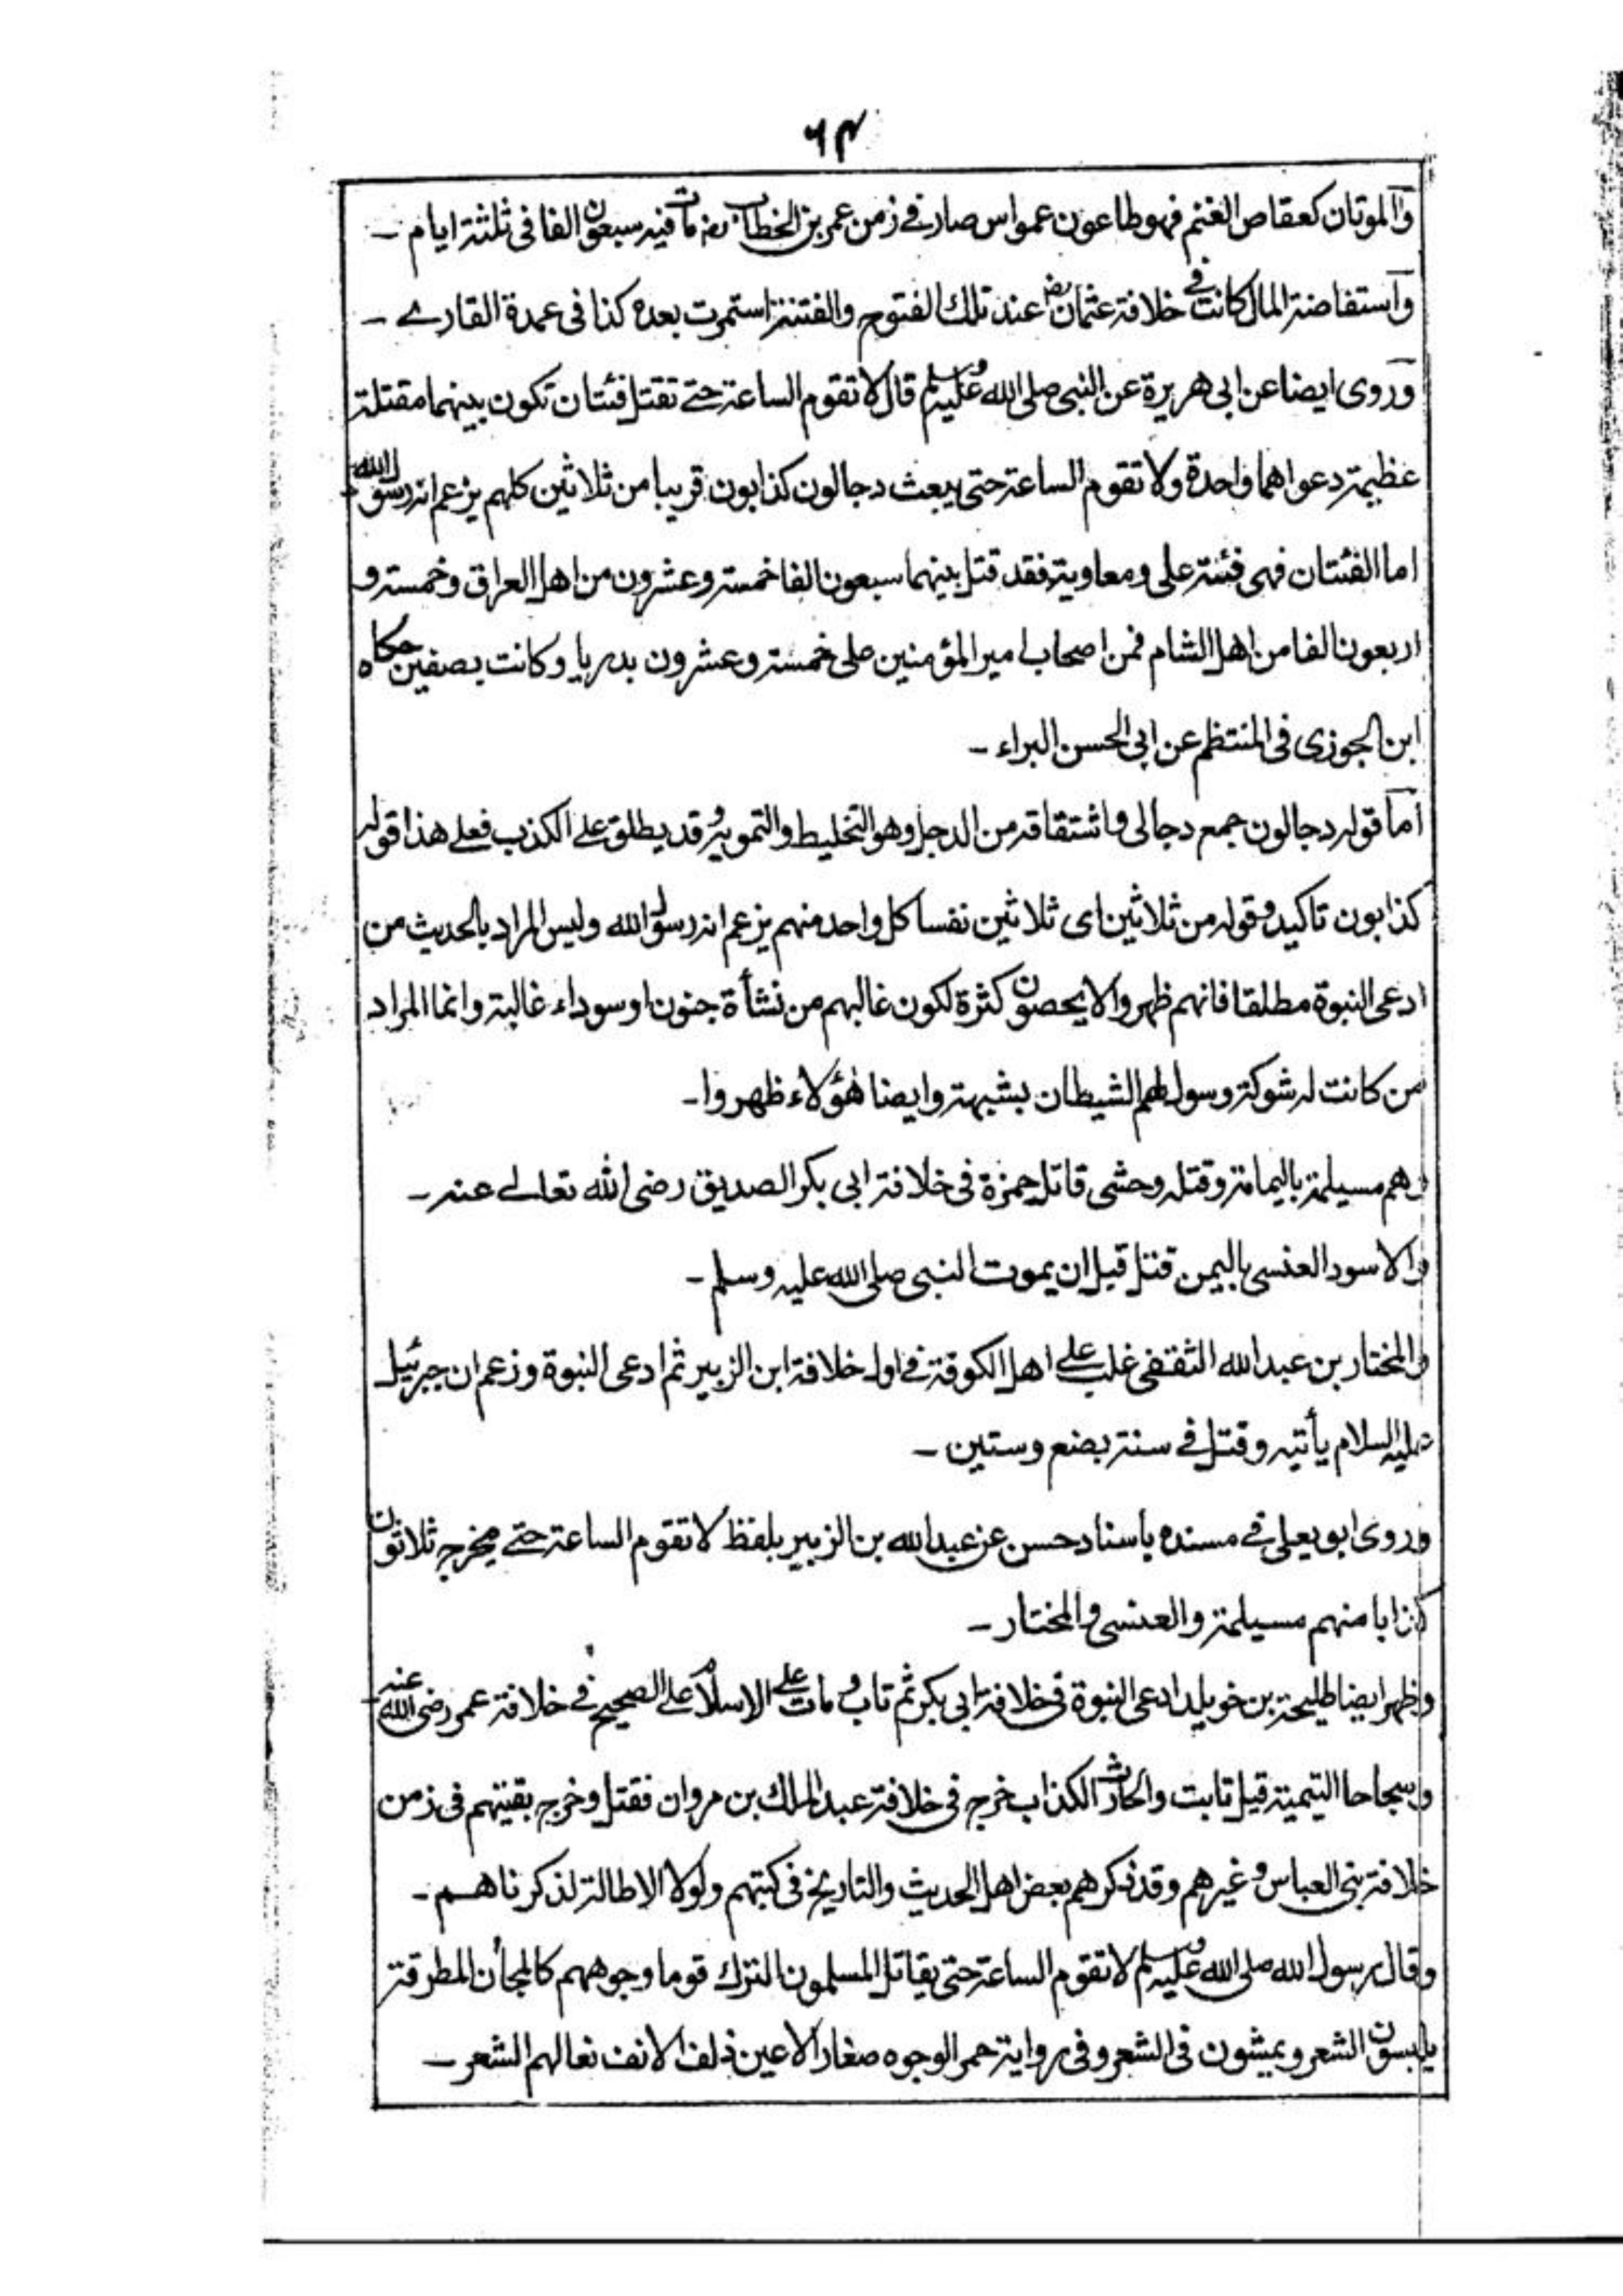 ٦٣
والموتان كعقاص الغنم فهو طاعون عمواس صار في زمن عمر بن الخطاب رضـ مات فيه سبعون الفا فى ثلثة ايام ــ
واستفاضة المال كانت في خلافة عثمان رضـ عند تلك الفتوح والفتنة استمرت بعده كذا فى عمدة القارے ــ
وروى ايضا عن ابى هريرة عن النبى صلى الله عليه وسلم قال لا تقوم الساعة حتے تقتل فئتان تكون بينهما مقتلة
عظيمة دعواهما واحدة ولا تقوم الساعة حتى يبعث دجالون كذابون قريبا من ثلاثين كلهم يزعم انه رسول الله
اما الفئتان فهى فئة على ومعاوية فقد قتل بينهما سبعون الفا خمسة وعشرون من اهل العراق وخمسة و
اربعون الفا من اهل الشام فمن اصحاب امير المؤمنين على خمسة وعشرون بدريا وكانت بصفين حكاه
ابن الجوزى فى المنتظم عن ابى الحسن البراء ــ
أما قوله دجالون جمع دجالى واشتقاقه من الدجل وهو التخليط والتمويه وقد يطلق علے الكذب فعلے هذا قوله
كذابون تاكيد وقوله من ثلاثين اى ثلاثين نفسا كل واحد منهم يزعم انه رسول الله وليس المراد بالحديث من
ادعى النبوة مطلقا فانهم ظهروا لا يحصون كثرة لكون غالبهم من نشأة جنون او سوداء غالبة وانما المراد
من كانت له شوكة وسول لهم الشيطان بشبهة وايضا هؤلاء ظهروا ــ
وهم مسيلمة باليمامة وقتله وحشى قاتل حمزة فى خلافة ابى بكر الصديق رضى الله تعالے عنه ــ
والاسود العنسى باليمن قتل قبل ان يموت النبى صلى الله عليه وسلم ــ
والمختار بن عبد الله الثقفى غلب علے اهل الكوفة في اول خلافة ابن الزبير ثم ادعى النبوة وزعم ان جبرئيل
عليه السلام يأتيه وقتل في سنة بضع وستين ــ
وروى ابو يعلى في مسنده باسناد حسن عن عبد الله بن الزبير بلفظ لا تقوم الساعة حتے يخرج ثلاثون
كذابا منهم مسيلمة والعنسى والمختار ــ
وظهر ايضا طليحة بن خويلد ادعى النبوة فى خلافة ابى بكر ثم تاب ومات علے الاسلام علے الصحيح في خلافة عمر رضى الله عنه
وسجاحا التيمية قيل تابت والحارث الكذاب خرج فى خلافة عبد الملك بن مروان فقتل وخرج بقيتهم فى زمن
خلافة بنى العباس وغيرهم وقد ذكرهم بعض اهل الحديث والتاريخ فى كتبهم ولولا الاطالة لذكرناهم ــ
وقال رسول الله صلى الله عليه وسلم لا تقوم الساعة حتى يقاتل المسلمون الترك قوما وجوههم كالمجأن المطرقة
يلبسون الشعر ويمشون فى الشعر وفى رواية حمر الوجوه صغار الاعين ذلف الانف نعالهم الشعر ــ